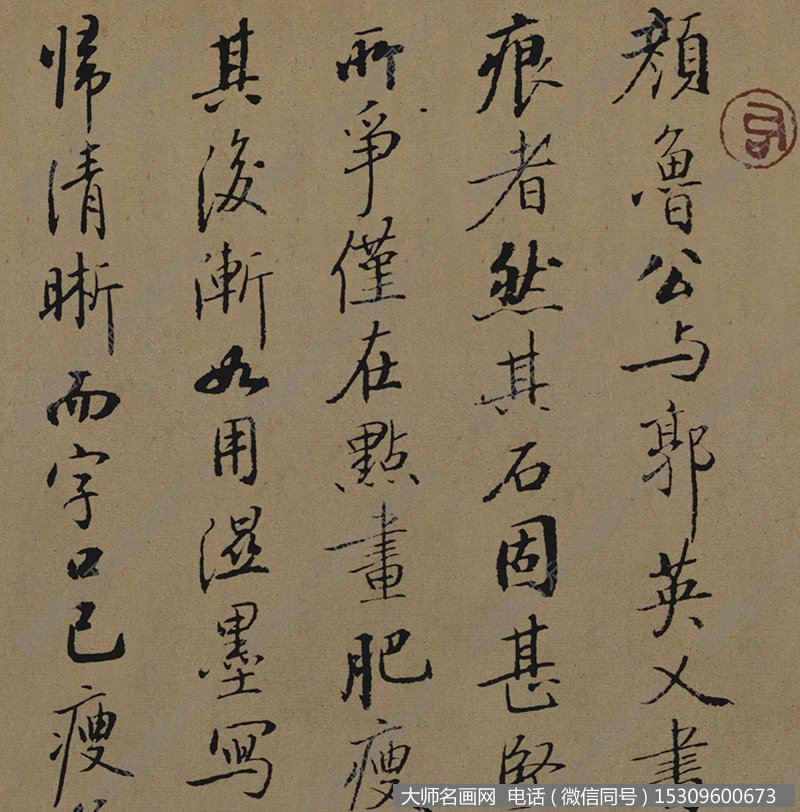 顔魯公与郭英乂書
痕者然其石固甚堅
所爭僅在點畫肥瘦
其後漸如用濕墨寫
帰清晰而字口已瘦
大师名画网 电话(微信同号)15309600673